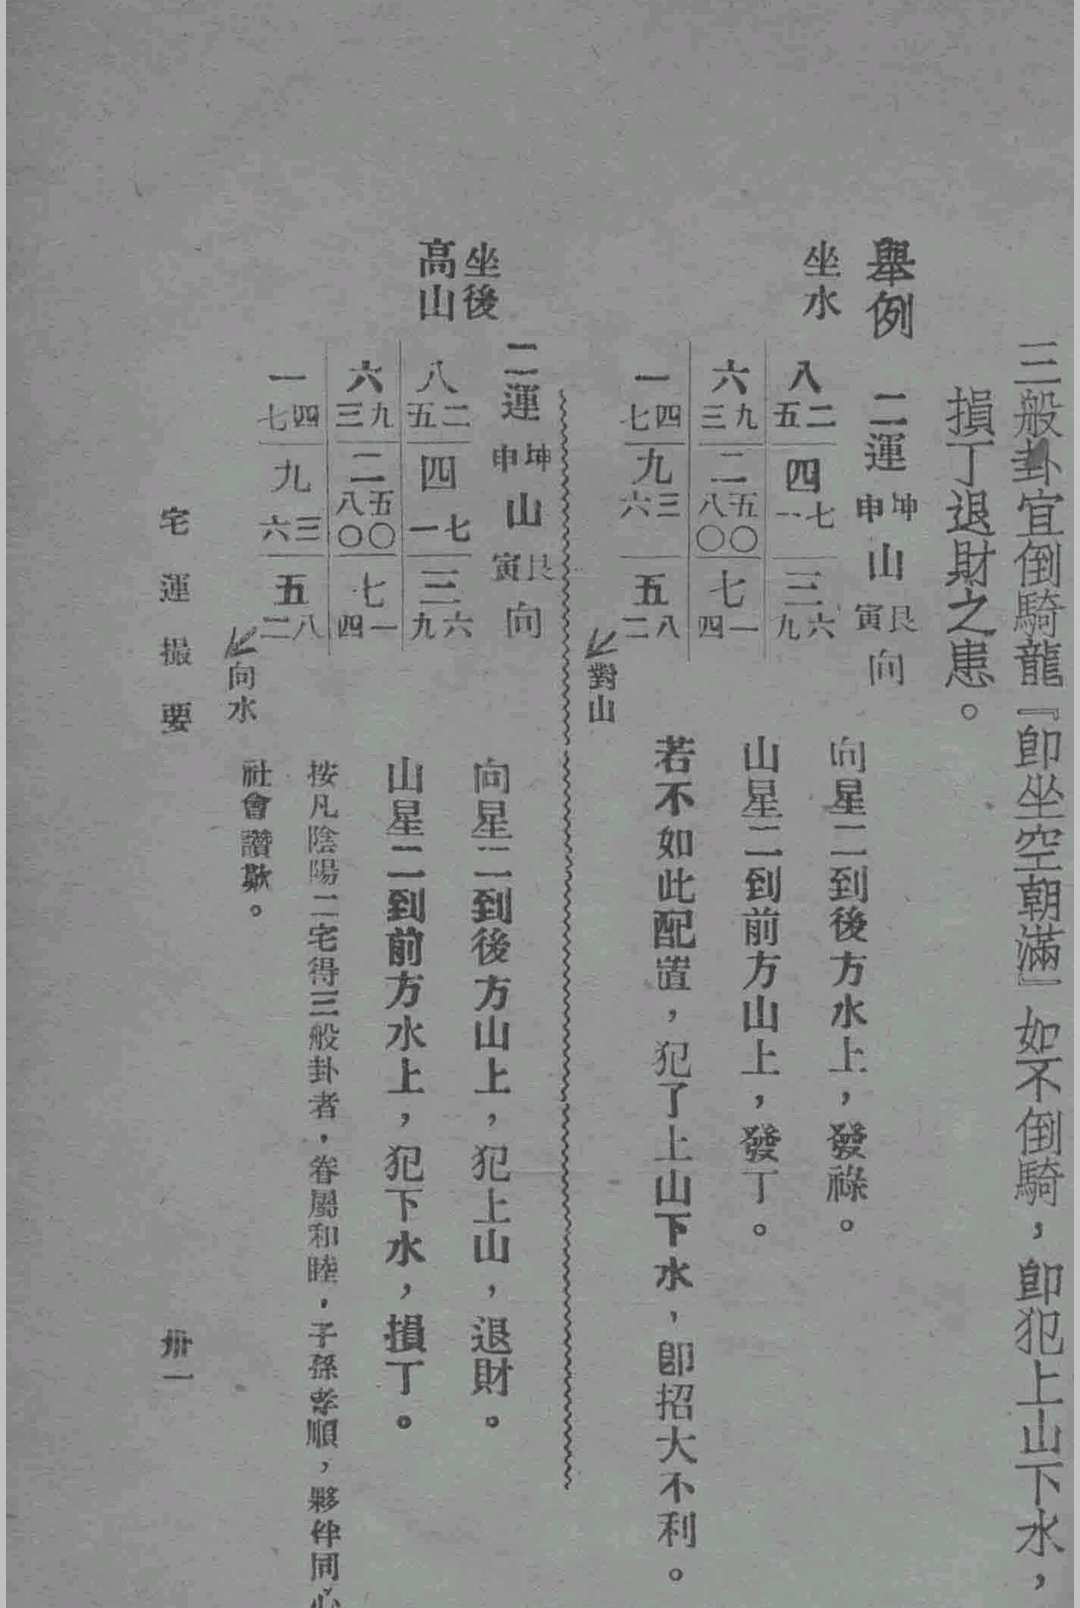 三般卦宜倒騎龍『即坐空朝滿』如不倒騎，即犯上山下水，
損丁退財之患。
舉例
二運坤申山艮寅向
坐水
八 二五 四 七一 三 六九
六 九三 二 五八 〇〇 七 一四
一 四七 九 三六 五 八二
對山
向星二到後方水上，發祿。
山星二到前方山上，發丁。
若不如此配置，犯了上山下水，即招大不利。
二運坤申山艮寅向
坐後
高山
八 二五 四 七一 三 六九
六 九三 二 五八 〇〇 七 一四
一 四七 九 三六 五 八二
向水
向星二到後方山上，犯上山，退財。
山星二到前方水上，犯下水，損丁。
按凡陰陽二宅得三般卦者，眷屬和睦，子孫孝順，夥伴同心
社會讚歎。
宅運撮要
卅一